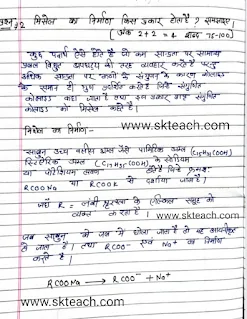 प्रश्न-2 मिसेल का निर्माण किस प्रकार होता है ? समझाए
www.skteach.com
[अंक 2+2 = 4 शब्द 75-100]
कुछ पदार्थ ऐसे होते हैं जो कम सांद्रता पर सामान्य
प्रबल विद्युत अपघट्य की तरह व्यवहार करते हैं परन्तु
अधिक सांद्रता पर कणों के संगुणन के कारण कोलाइड
के समान ही गुण प्रदर्शित करते हैं जिसे संगुणित
कोलाइड कहा जाता है तथा इस प्रकार प्राप्त संगुणित
कोलाइड को मिसेल कहते हैं।
www.skteach.com
मिसेल का निर्माण:-
साबुन उच्च वसीय अम्ल जैसे पामिटिक अम्ल (C15H31COOH)
स्टिएरिक अम्ल (C17H35COOH) के सोडियम
या पोटैशियम लवण होते हैं जिसे क्रमशः
RCOONa या RCOOK से दर्शाया जाता है।
www.skteach.com
जहाँ R = लंबी श्रृंखला के एल्किल समूह को
व्यक्त कर रहा है।
जब साबुन को जल में घोला जाता है तो वह आयनीकृत
हो जाता है। तथा RCOO- एवं Na+ का निर्माण
करते है।
RCOONa → RCOO- + Na+
www.skteach.com